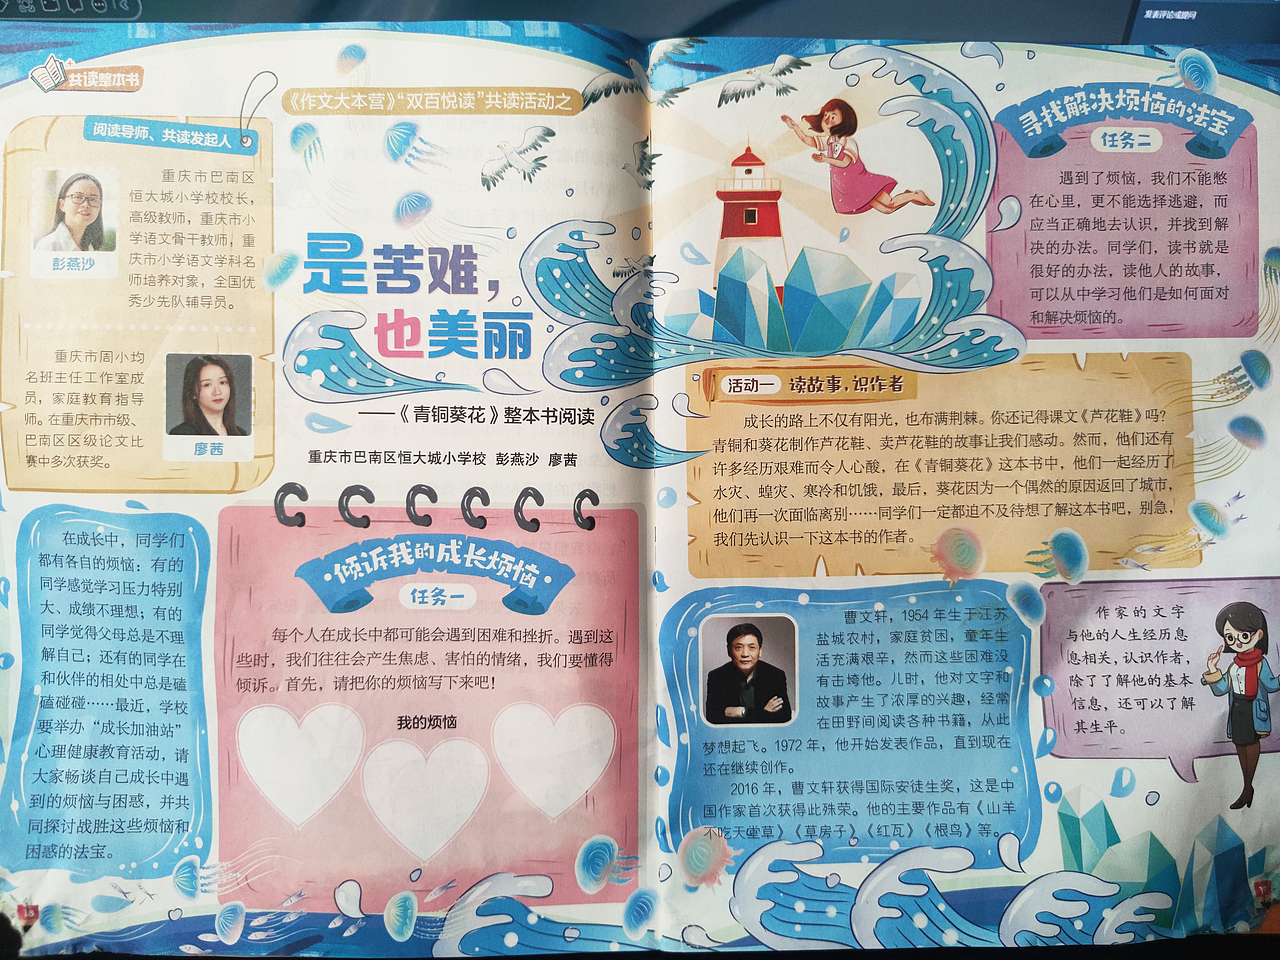 发表评论或提问
共读整本书
《作文大本营》“双百悦读”共读活动之
阅读导师、共读发起人
重庆市巴南区
恒大城小学校校长，
高级教师，重庆市小
学语文骨干教师，重
庆市小学语文学科名
师培养对象，全国优
秀少先队辅导员。
彭燕沙
重庆市周小均
名班主任工作室成
员，家庭教育指导
师。在重庆市市级、
巴南区区级论文比
赛中多次获奖。
廖茜
是苦难，
也美丽
——《青铜葵花》整本书阅读
重庆市巴南区恒大城小学校 彭燕沙 廖茜
在成长中，同学们
都有各自的烦恼：有的
同学感觉学习压力特别
大、成绩不理想；有的
同学觉得父母总是不理
解自己；还有的同学在
和伙伴的相处中总是磕
磕碰碰……最近，学校
要举办“成长加油站”
心理健康教育活动，请
大家畅谈自己成长中遇
到的烦恼与困惑，并共
同探讨战胜这些烦恼和
困惑的法宝。
·倾诉我的成长烦恼·
任务一
每个人在成长中都可能会遇到困难和挫折。遇到这
些时，我们往往会产生焦虑、害怕的情绪，我们要懂得
倾诉。首先，请把你的烦恼写下来吧！
我的烦恼
寻找解决烦恼的法宝
任务二
遇到了烦恼，我们不能憋
在心里，更不能选择逃避，而
应当正确地去认识，并找到解
决的办法。同学们，读书就是
很好的办法，读他人的故事，
可以从中学习他们是如何面对
和解决烦恼的。
活动一 读故事，识作者
成长的路上不仅有阳光，也布满荆棘。你还记得课文《芦花鞋》吗？
青铜和葵花制作芦花鞋、卖芦花鞋的故事让我们感动。然而，他们还有
许多经历艰难而令人心酸，在《青铜葵花》这本书中，他们一起经历了
水灾、蝗灾、寒冷和饥饿，最后，葵花因为一个偶然的原因返回了城市，
他们再一次面临离别……同学们一定都迫不及待想了解这本书吧，别急，
我们先认识一下这本书的作者。
曹文轩，1954 年生于江苏
盐城农村，家庭贫困，童年生
活充满艰辛，然而这些困难没
有击垮他。儿时，他对文字和
故事产生了浓厚的兴趣，经常
在田野间阅读各种书籍，从此
梦想起飞。1972 年，他开始发表作品，直到现在
还在继续创作。
2016 年，曹文轩获得国际安徒生奖，这是中
国作家首次获得此殊荣。他的主要作品有《山羊
不吃天堂草》《草房子》《红瓦》《根鸟》等。
作家的文字
与他的人生经历息
息相关，认识作者，
除了了解他的基本
信息，还可以了解
其生平。